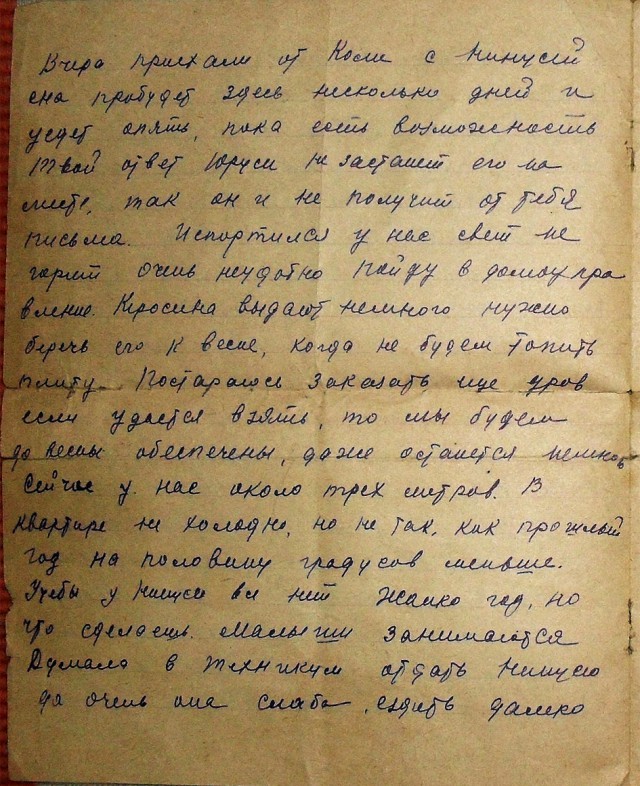 Вчера приехали от Коли с Нинусей
она пробудет здесь несколько дней и
уедет опять, пока есть возможность
Твой ответ Юруси не застанет его на
месте, так он и не получит от тебя
письма. Испортился у нас свет не
горит очень неудобно Пойду в домоупра
вление. Киросина выдают немного нужно
беречь его к весне, когда не будем топить
плиту. Постараюсь заказать еще дров
если удастся взять, то мы будем
до весны обеспечены, даже останется немног
Сейчас у нас около трех метров. В
квартире не холодно, но не так, как прошлый
год на половину градусов меньше.
Учебы у Нинуси все нет Жалко год, но
что сделаешь. Малыши занимаются
Думала в техникум отдать Нинусю
да очень она слаба, ездить далеко